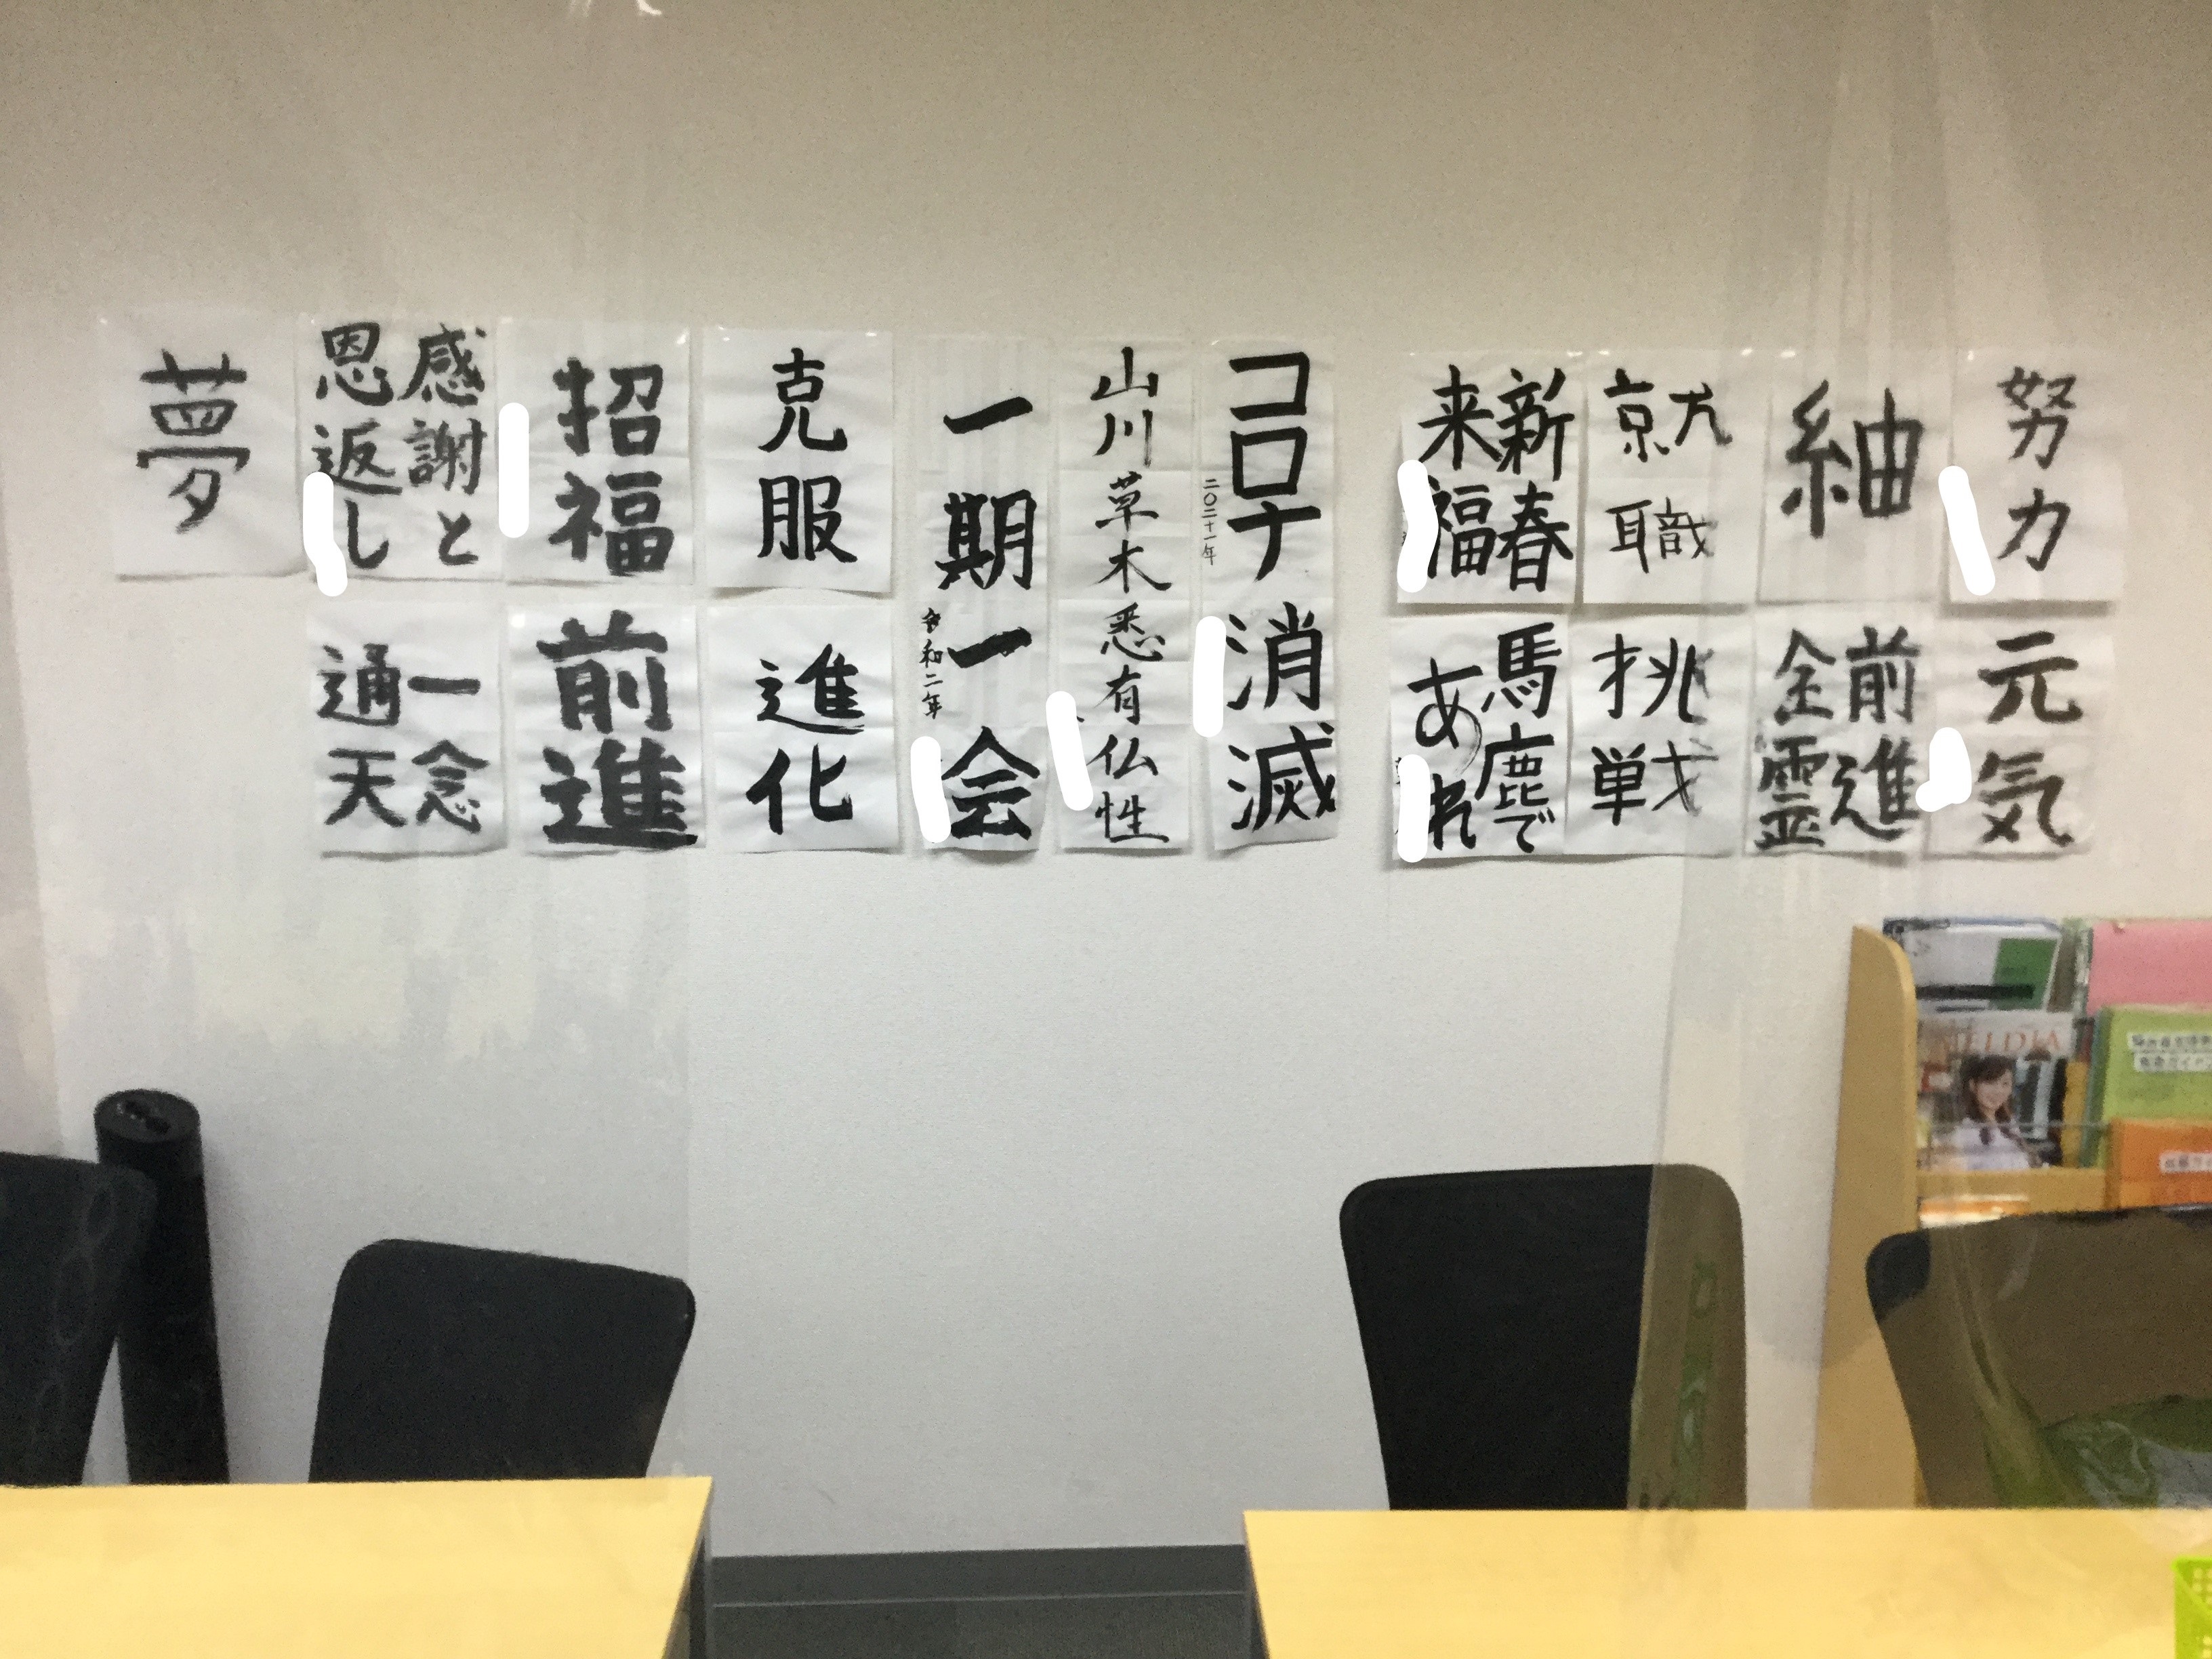 努力
元気
紬
前進
全霊
就職
挑戦
新春
来福
馬鹿で
あれ
コロナ消滅
二〇二十一年
山川草木悉有仏性
一期一会
令和二年
克服
進化
招福
前進
感謝と
恩返し
一念
通天
夢